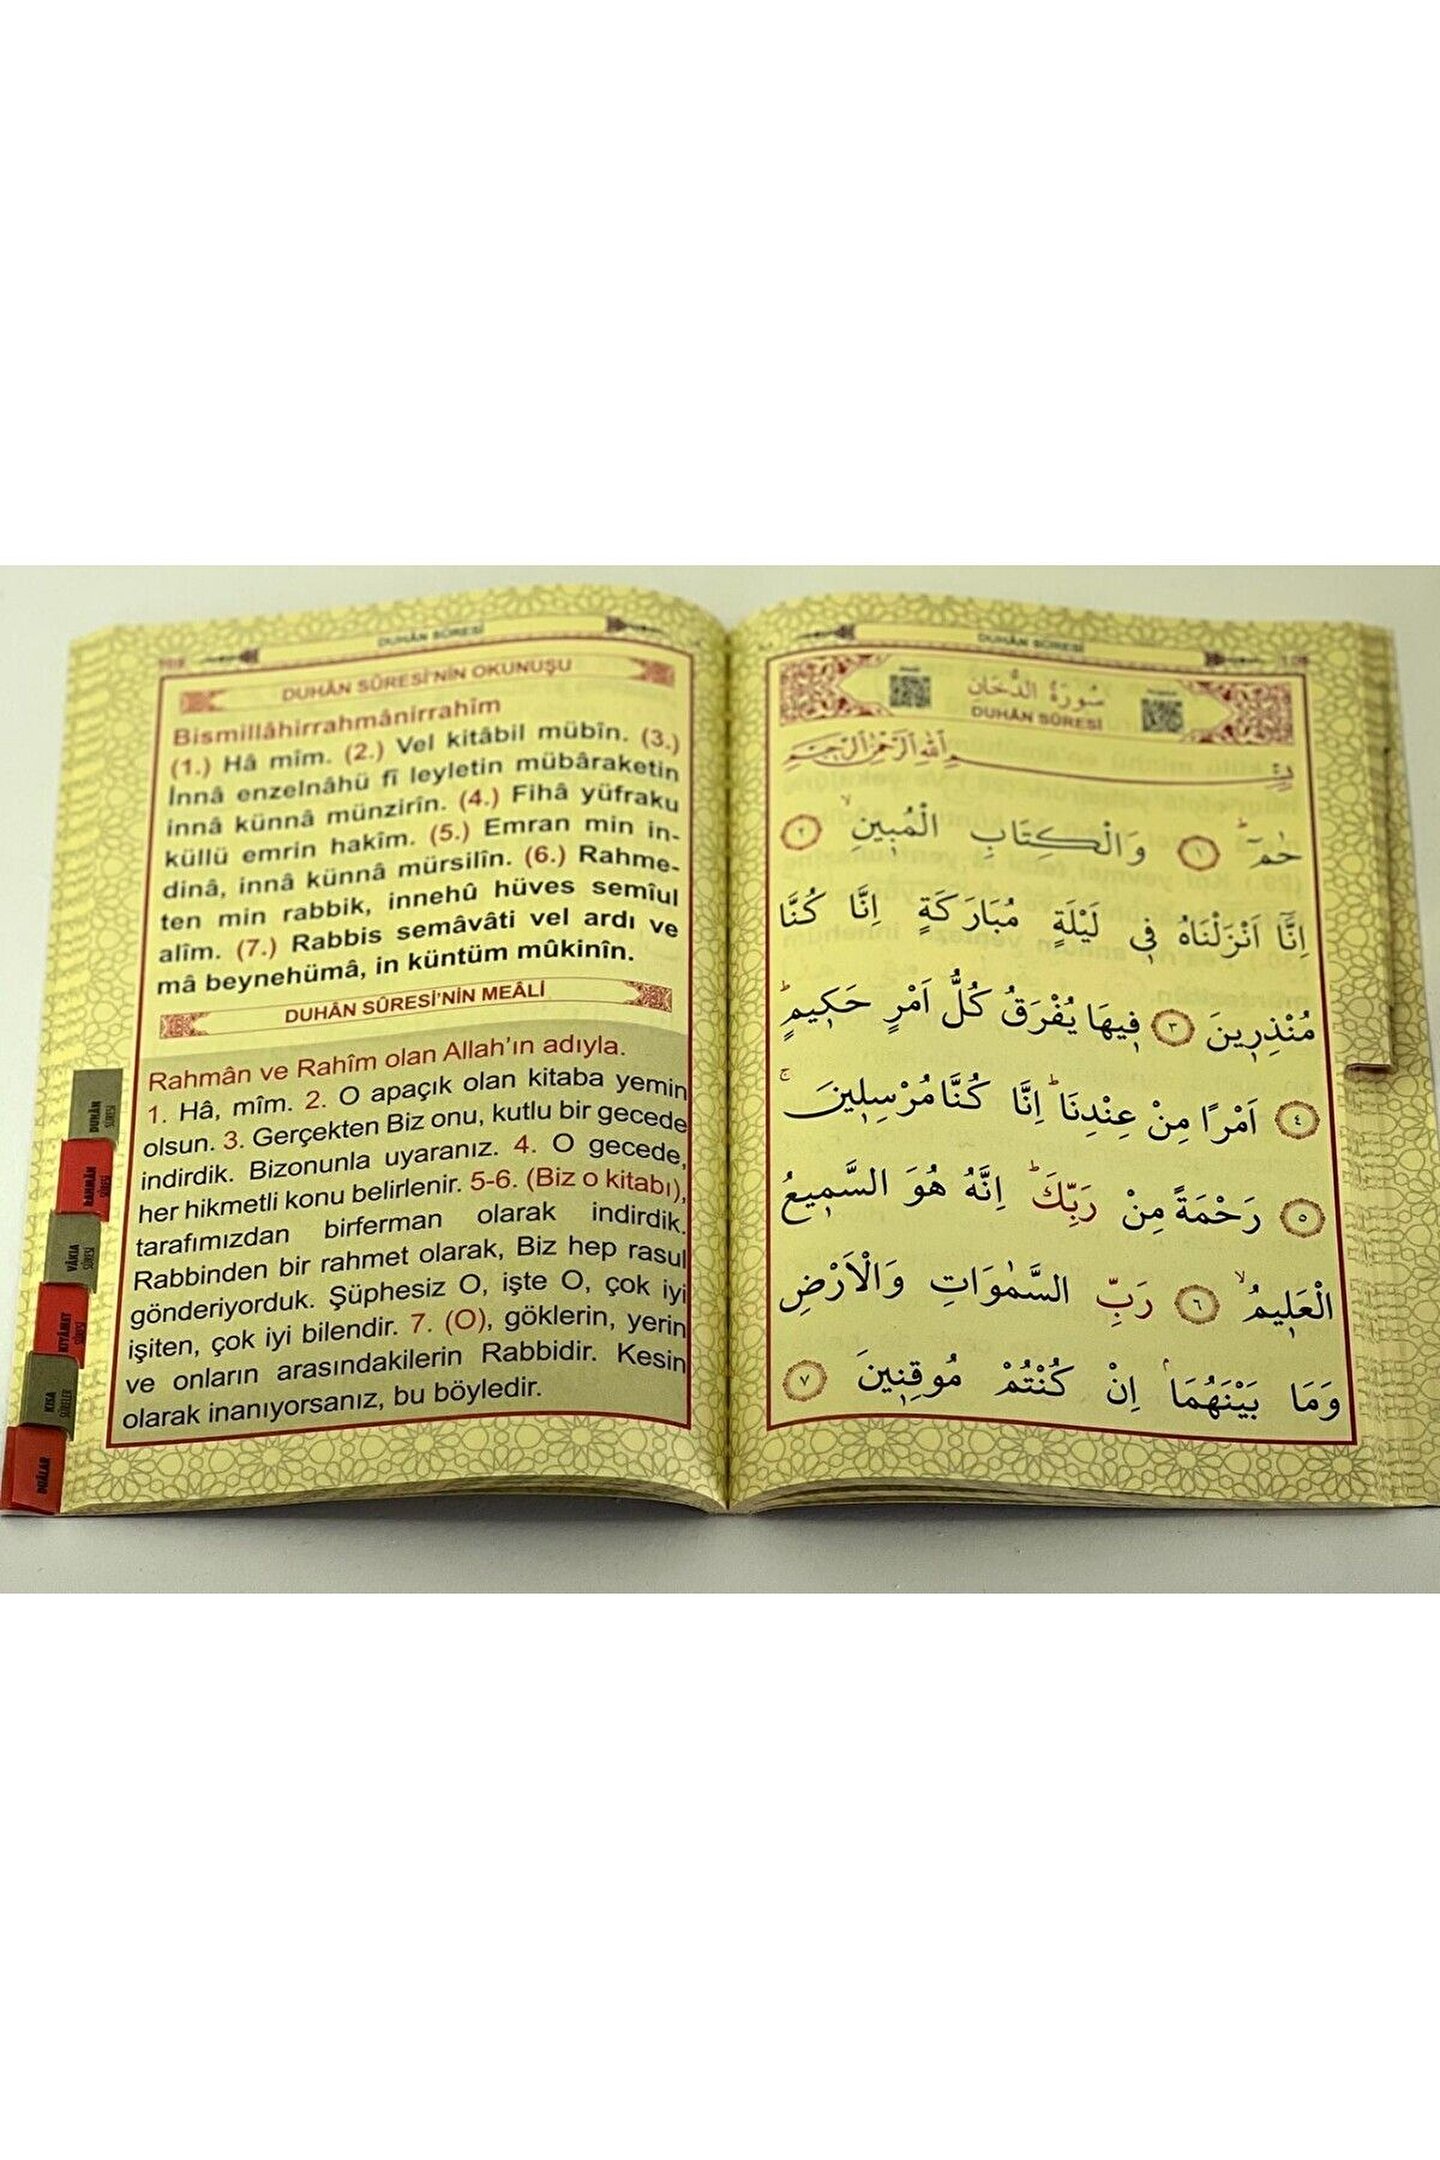 DUHÂN SÛRESİ
DUHÂN SÛRESİ'NİN OKUNUŞU
Bismillâhirrahmânirrahîm
(1.) Hâ mîm. (2.) Vel kitâbil mübîn. (3.)
İnnâ enzelnâhü fî leyletin mübâraketin
innâ künnâ münzirîn. (4.) Fihâ yüfraku
küllü emrin hakîm. (5.) Emran min in-
dinâ, innâ künnâ mürsilîn. (6.) Rahme-
ten min rabbik, innehû hüves semîul
alîm. (7.) Rabbis semâvâti vel ardı ve
mâ beynehümâ, in küntüm mûkinîn.
DUHÂN SÛRESİ'NİN MEÂLİ
Rahmân ve Rahîm olan Allah'ın adıyla.
1. Hâ, mîm. 2. O apaçık olan kitaba yemin
olsun. 3. Gerçekten Biz onu, kutlu bir gecede
indirdik. Bizonunla uyaranız. 4. O gecede,
her hikmetli konu belirlenir. 5-6. (Biz o kitabı),
tarafımızdan birferman olarak indirdik.
Rabbinden bir rahmet olarak, Biz hep rasul
gönderiyorduk. Şüphesiz O, işte O, çok iyi
işiten, çok iyi bilendir. 7. (O), göklerin, yerin
ve onların arasındakilerin Rabbidir. Kesin
olarak inanıyorsanız, bu böyledir.
DUHÂN
SÛRESİ
RAHMÂN
SÛRESİ
VÂKIA
SÛRESİ
KIYÂMET
SÛRESİ
KISA
SÛRELER
DUÂLAR
DUHÂN SÛRESİ
سُورَةُ الدُّخَانِ
DUHÂN SÛRESİ
بِسْمِ اللّٰهِ الرَّحْمٰنِ الرَّحِيمِ
حٰمٓ ۜ ﴿١﴾ وَالْكِتَابِ الْمُبٖينِ ۙ ﴿٢﴾
اِنَّٓا اَنْزَلْنَاهُ فٖي لَيْلَةٍ مُبَارَكَةٍ اِنَّا كُنَّا
مُنْذِرٖينَ ﴿٣﴾ فٖيهَا يُفْرَقُ كُلُّ اَمْرٍ حَكٖيمٍ ؕ
﴿٤﴾ اَمْرًا مِنْ عِنْدِنَا ؕ اِنَّا كُنَّا مُرْسِلٖينَ ۚ
﴿٥﴾ رَحْمَةً مِنْ رَبِّكَ ؕ اِنَّهُ هُوَ السَّمٖيعُ
الْعَلٖيمُ ۙ ﴿٦﴾ رَبِّ السَّمٰوَاتِ وَالْاَرْضِ
وَمَا بَيْنَهُمَا ۘ اِنْ كُنْتُمْ مُوقِنٖينَ ﴿٧﴾